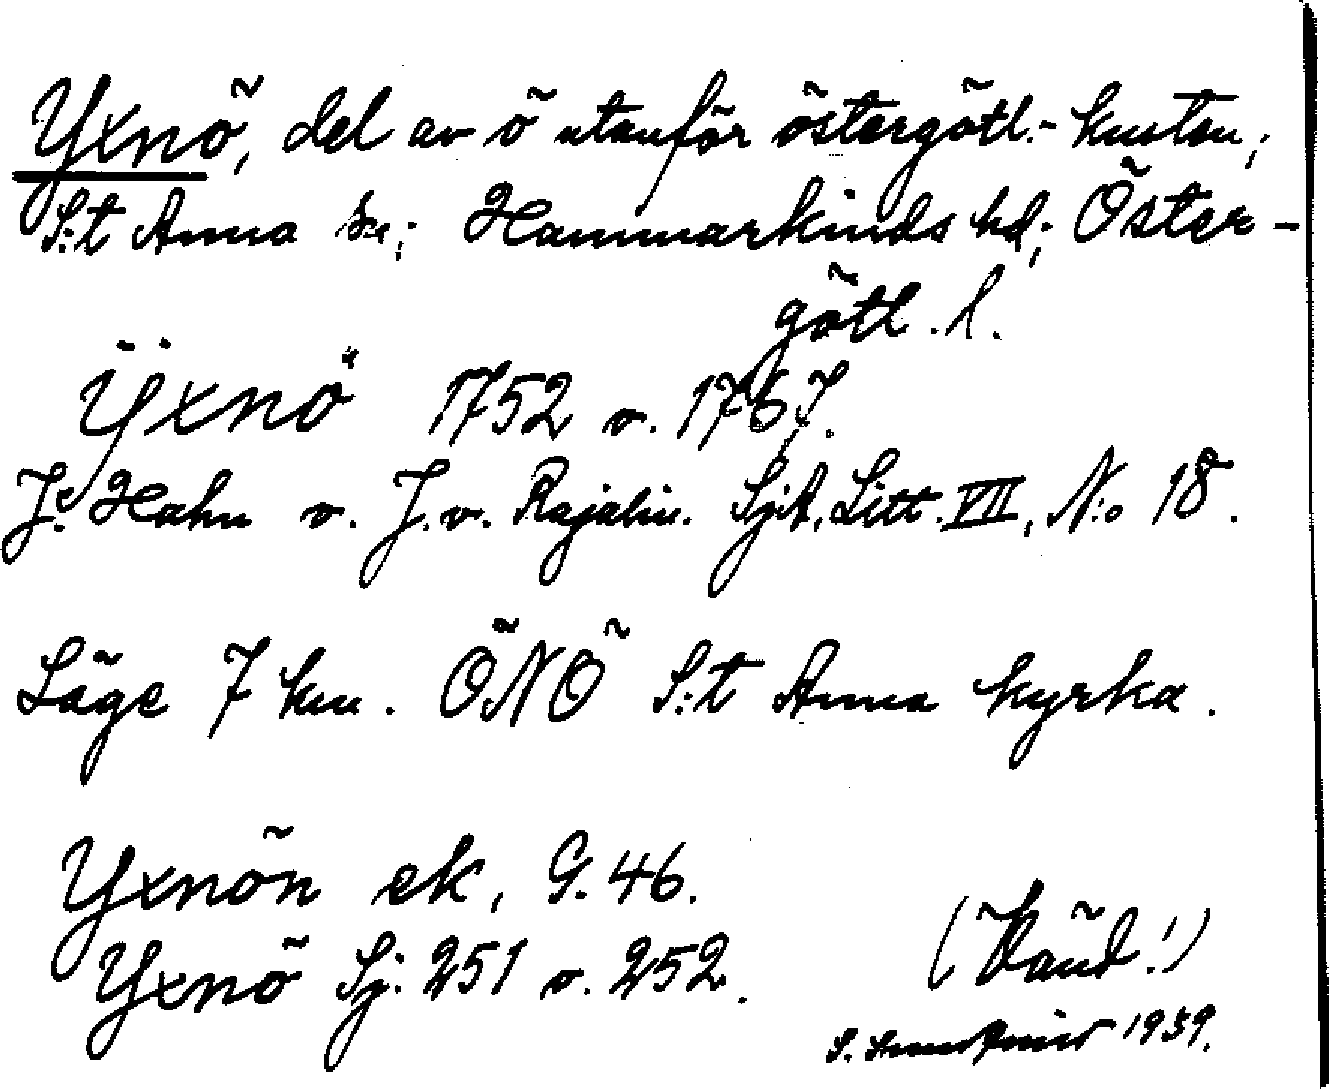 Yxnö, del av ö utanför östergötl.-kusten;
S:t Anna sn; Hammarkinds hd; Öster-
götl. l.
Ÿxnö 1752 o. 1767.
J. Hahn o. J. v. Rajalin. SjA, Litt. VII, N:o 18.
Läge 7 km. ÖNÖ S:t Anna kyrka.
Yxnön ek, G. 46.
Yxnö Sj. 251 o. 252.
(Vänd!)
S. 1939.